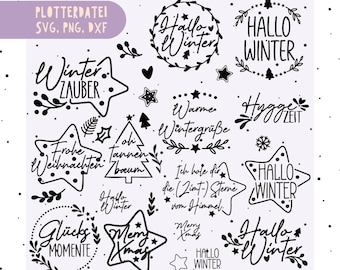 PLOTTERDATEI
SVG, PNG, DXF
Hallo
Winter
HALLO
WINTER
Winter
ZAUBER
Warme
Wintergrüße
Hygge
ZEIT
Frohe
Weihnachten
oh
tannen
baum
Hallo
Winter
Ich hole dir
die (Zimt-) Sterne
vom Himmel
HALLO
WINTER
Glücks
MOMENTE
Merry
Xmas
Merry
Xmas
HALLO
WINTER
Hallo
Winter